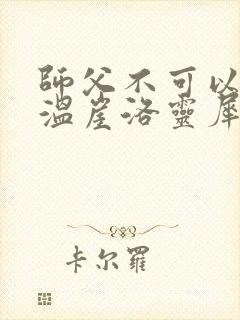 師父不可以
溫崖洛靈犀
卡尔羅